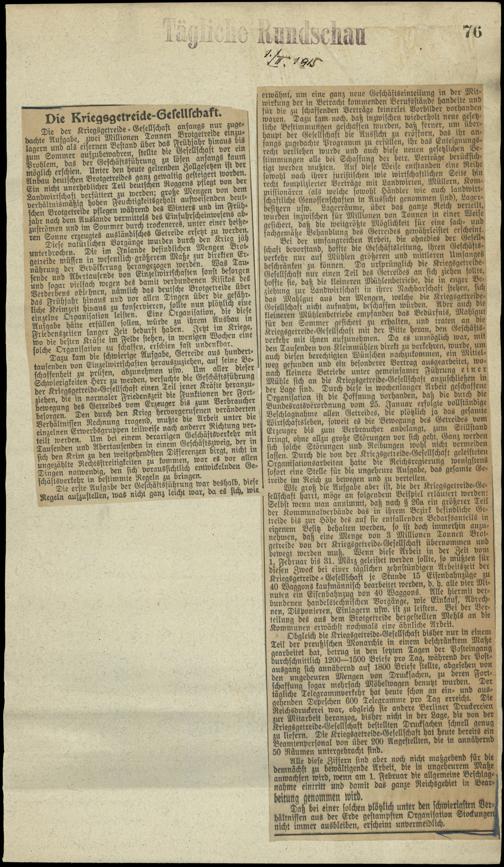 Tägliche Rundschau
76
1./II. 1915
Die Kriegsgetreide-Gesellschaft.
Die der Kriegsgetreide-Gesellschaft anfangs nur zuge-
dachte Aufgabe, zwei Millionen Tonnen Brotgetreide einzu-
lagern und als eisernen Bestand über das Frühjahr hinaus bis
zum Sommer aufzubewahren, stellte die Gesellschaft vor ein
Problem, das der Geschäftsführung zu lösen anfangs kaum
möglich erschien. Unter den heute geltenden Zollgesetzen ist der
Anbau deutschen Brotgetreides ganz gewaltig gesteigert worden.
Ein nicht unerheblicher Teil deutschen Roggens pflegt von der
Landwirtschaft verfüttert zu werden; große Mengen von dem
verhältnismäßig hohen Feuchtigkeitsgehalt aufweisenden deut-
schen Brotgetreide pflegen während des Winters und im Früh-
jahr nach dem Auslande vermittels des Einfuhrscheinwesens ab-
zuströmen und im Sommer durch trockeneres, unter dem heiße-
ren Sonne erzeugtes ausländisches Getreide ersetzt zu werden.
Diese natürlichen Vorgänge wurden durch den Krieg jäh
unterbrochen. Die im Inlande befindlichen Mengen Brot-
getreide müssen in wesentlich größerem Maße zur direkten Er-
nährung der Bevölkerung herangezogen werden. Was Tau-
sende und Abertausende von Einzelwirtschaften sonst besorgen
und sogar vielfach wegen des damit verbundenen Risikos des
Verderbens ablehnen, nämlich das deutsche Brotgetreide über
das Frühjahr hinaus und vor allen Dingen über die gefähr-
liche Keimzeit hinaus zu konservieren, sollte nun plötzlich eine
einzelne Organisation leisten. Eine Organisation, die diese
Aufgabe hätte erfüllen sollen, würde zu ihrem Ausbau in
Friedenszeiten langer Zeit bedurft haben. Jetzt im Kriege,
wo die besten Kräfte im Felde stehen, in wenigen Wochen eine
solche Organisation zu schaffen, erschien fast undenkbar.
Dazu kam die schwierige Aufgabe, Getreide aus hundert-
tausenden von Einzelwirtschaften herauszuziehen, auf seine Be-
schaffenheit zu prüfen, abzunehmen usw. Um aller dieser
Schwierigkeiten Herr zu werden, versuchte die Geschäftsführung
der Kriegsgetreide-Gesellschaft einen Teil jener Kräfte heranzu-
ziehen, die in normaler Friedenszeit die Funktionen der Fort-
bewegung des Getreides vom Erzeuger bis zum Verbraucher
besorgen. Den durch den Krieg hervorgerufenen veränderten
Verhältnissen Rechnung tragend, mußte die Arbeit unter die
einzelnen Erwerbsgruppen teilweise nach anderer Richtung ver-
teilt werden. Um bei einem derartigen Geschäftsverkehr mit
Tausenden und Abertausenden in einem Geschäftszweig, der in
sich den Keim zu den weitgehendsten Differenzen birgt, nicht in
ungezählte Rechtsstreitigkeiten zu kommen, war es vor allen
Dingen notwendig, den sich voraussichtlich entwickelnden Ge-
schäftsverkehr in bestimmte Regeln zu bringen.
Die erste Aufgabe der Geschäftsführung war deshalb, diese
Regeln aufzustellen, was nicht ganz leicht war, da es sich, wie
erwähnt, um eine ganz neue Geschäftseinteilung in der Mit-
wirkung der in Betracht kommenden Berufsstände handelte und
für die zu schaffenden Verträge keinerlei Vorbilder vorhanden
waren. Dazu kam noch, daß inzwischen wiederholt neue gesetz-
liche Bestimmungen geschaffen wurden, daß ferner, um über-
haupt der Gesellschaft die Aussicht zu eröffnen, das ihr an-
fangs zugedachte Programm zu erfüllen, ihr das Enteignungs-
recht verliehen wurde, und daß auch diese neuen gesetzlichen Be-
stimmungen alle bei Schaffung der betr. Verträge berücksich-
tigt werden mußten. Auf diese Weise entstanden eine Reihe
sowohl nach ihrer juristischen wie wirtschaftlichen Seite hin
recht komplizierter Verträge mit Landwirten, Müllern, Kom-
missionären (als welche sowohl Händler wie auch landwirt-
schaftliche Genossenschaften in Aussicht genommen sind), Lager-
besitzern usw. Lagerräume, über das ganze Reich verteilt,
wurden inzwischen für Millionen von Tonnen in einer Weise
gesichert, daß die weitgehendste Möglichkeit für eine sach- und
fachgemäße Behandlung des Getreides gewährleistet erscheint.
Bei der umfangreichen Arbeit, die ohnedies der Gesell-
schaft bevorstand, hoffte die Geschäftsführung, ihren Geschäfts-
verkehr nur auf Mühlen größeren und mittleren Umfanges be-
schränken zu können. Da ursprünglich die Kriegsgetreide-
Gesellschaft nur einen Teil des Getreides an sich ziehen sollte,
hoffte sie, daß die kleineren Mühlenbetriebe, die in enger Be-
ziehung zur Landwirtschaft in ihrer Nachbarschaft stehen, sich
das Mahlgut aus den Mengen, welche die Kriegsgetreide-
Gesellschaft nicht aufnahm, beschaffen würden. Aber auch die
kleineren Mühlenbetriebe empfanden das Bedürfnis, Mahlgut
für den Sommer gesichert zu erhalten, und traten an die
Kriegsgetreide-Gesellschaft mit der Bitte heran, den Geschäfts-
verkehr mit ihnen aufzunehmen. Da es unmöglich war, mit
den Tausenden von Kleinmühlen direkt zu verkehren, wurde, um
auch diesen berechtigten Wünschen nachzukommen, ein Mittel-
weg gefunden und ein besonderer Vertrag ausgearbeitet, wo-
nach kleinere Betriebe unter gemeinsamer Führung einer
Mühle sich an die Kriegsgetreide-Gesellschaft anzuschließen in
der Lage sind. Durch die in wochenlanger Arbeit geschaffene
Organisation ist die Hoffnung vorhanden, daß die durch die
Bundesratsverordnung vom 25. Januar erfolgte vollständige
Beschlagnahme allen Getreides, die plötzlich ja das gesamte
Wirtschaftsleben, soweit es die Bewegung des Getreides vom
Erzeuger bis zum Verbraucher anbelangt, zum Stillstand
bringt, ohne allzu große Störungen vor sich geht. Ganz werden
sich solche Störungen und Reibungen wohl nicht vermeiden
lassen. Durch die von der Kriegsgetreide-Gesellschaft geleisteten
Organisationsarbeiten hatte die Reichsregierung wenigstens
sofort eine Stelle für die ungeheure Aufgabe, das gesamte Ge-
treide im Reich zu bewegen und zu verteilen.
Wie groß die Aufgabe aber ist, die der Kriegsgetreide-Ge-
sellschaft harrt, möge an folgendem Beispiel erläutert werden:
Selbst wenn man annimmt, daß nach § 26a ein größerer Teil
der Kommunalverbände das in ihrem Bezirk befindliche Ge-
treide bis zur Höhe des auf sie entfallenden Bedarfsanteils in
eigenem Besitz behalten werden, so ist doch immerhin anzu-
nehmen, daß eine Menge von 3 Millionen Tonnen Brot-
getreide von der Kriegsgetreide-Gesellschaft übernommen und
bewegt werden muß. Wenn diese Arbeit in der Zeit vom
1. Februar bis 31. März geleistet werden sollte, so müßten für
diesen Zweck bei einer täglichen zehnstündigen Arbeitszeit der
Kriegsgetreide-Gesellschaft je Stunde 15 Eisenbahnzüge zu
40 Waggons kaufmännisch bearbeitet werden, d. h. alle vier Mi-
nuten ein Eisenbahnzug von 40 Waggons. Alle hiermit ver-
bundenen handelstechnischen Vorgänge, wie Einkauf, Abrech-
nen, Disponieren, Einlagern usw. ist zu leisten. Bei der Ver-
teilung des aus dem Brotgetreide hergestellten Mehls an die
Kommunen erwächst nochmals eine ähnliche Arbeit.
Obgleich die Kriegsgetreide-Gesellschaft bisher nur in einem
Teil der preußischen Monarchie in einem beschränkten Maße
gearbeitet hat, betrug in den letzten Tagen der Posteingang
durchschnittlich 1200—1500 Briefe pro Tag, während der Post-
ausgang sich annähernd auf 1800 Briefe stellte, abgesehen von
den ungeheuren Mengen von Drucksachen, zu deren Fort-
schaffung sogar mehrfach Möbelwagen benutzt wurden. Der
tägliche Telegrammverkehr hat heute schon an ein- und aus-
gehenden Depeschen 600 Telegramme pro Tag erreicht. Die
Reichsdruckerei war, obgleich sie andere Berliner Druckereien
zur Mitarbeit heranzog, bisher nicht in der Lage, die von der
Kriegsgetreide-Gesellschaft bestellten Drucksachen schnell genug
zu liefern. Die Kriegsgetreide-Gesellschaft hat heute bereits ein
Beamtenpersonal von über 200 Angestellten, die in annähernd
50 Räumen untergebracht sind.
Alle diese Ziffern sind aber noch nicht maßgebend für die
demnächst zu bewältigende Arbeit, die in ungeheurem Maße
anwachsen wird, wenn am 1. Februar die allgemeine Beschlag-
nahme eintritt und damit das ganze Reichsgebiet in Bear-
beitung genommen wird.
Daß bei einer solchen plötzlich unter den schwierigsten Ver-
hältnissen aus der Erde gestampften Organisation Stockungen
nicht immer ausbleiben, erscheint unvermeidlich.